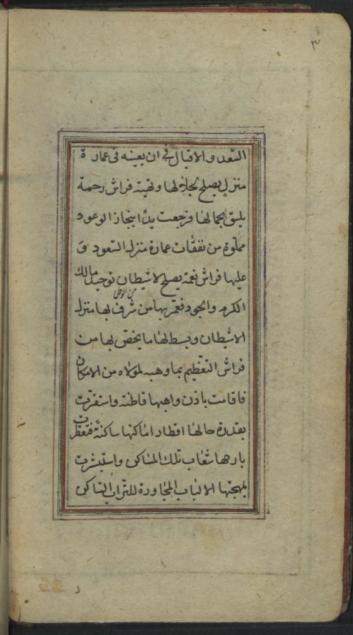 ٣
السعد والاقبال في ان يعينه في عمارة
منزل يصلح لجلالها وتهيئة فراش رحمة
يليق بجمالها فرجعت يد انجاز الوعود
مملوة من نفقات عمارة منزله السعود و
عليها فراش نعمة يصلح لاستيطان توحيد مالك
الكرم والجود فعمر بها من شرف بها منزله
الاستيطان وبسط لها ما يختص بها من
فراش التعظيم بما وهبه لمولاه من الامكان
فاقامت باذن واهبها قاطنة واستقرت
بقدرة جاعلها اقطار اماكنها ساكنة فتعطرت
بارجها شعاب تلك المساكن واستبشرت
ببهجتها الالباب المجاورة للتراب الساكن